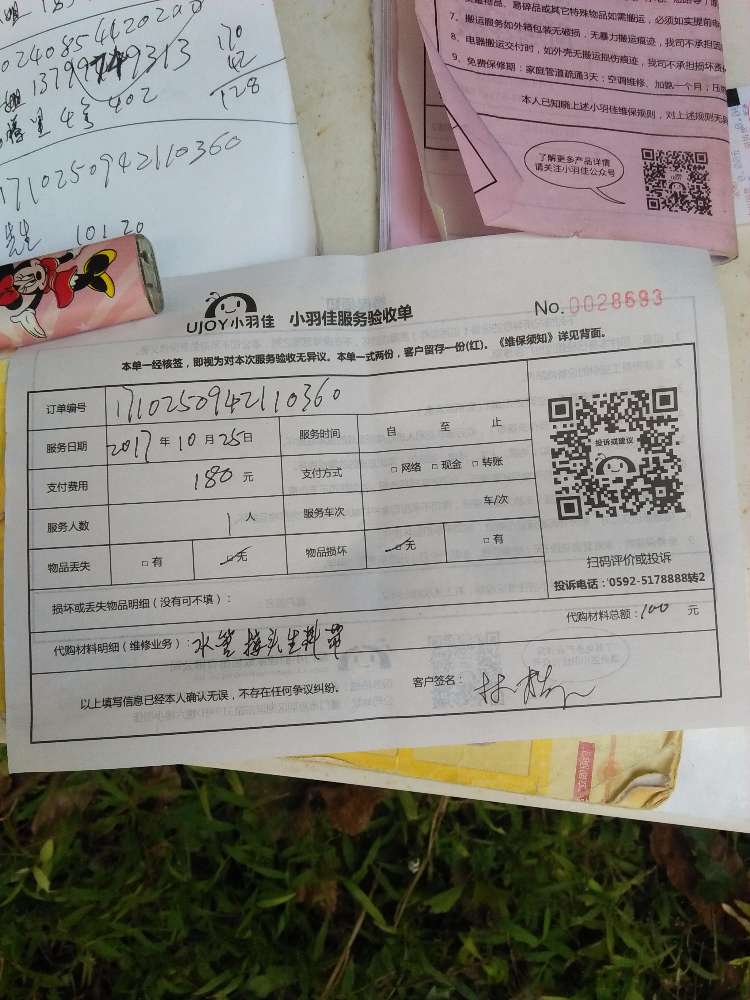 13799749313
170
42
128
402
17102509421 10360
先生 101 20
7、搬运服务如外箱包装无破损，无暴力搬运痕迹，我司不承担
8、电器搬运交付时，如外壳无搬运损伤痕迹，我司不承担损坏
9、免费保修期：家庭管道疏通3天；空调维修、加氨一个月；
本人已知晓上述小羽佳维保规则，对上述规则无
了解更多产品详情
请关注小羽佳公众号
UJOY小羽佳 小羽佳服务验收单 No.0028693
本单一经核签，即视为对本次服务验收无异议。本单一式两份，客户留存一份(红)。《维保须知》详见背面。
订单编号 1710250942110360
服务日期 2017 年 10 月 25 日 服务时间 自 至 止
支付费用 180 元 支付方式 □网络 □现金 □转账
服务人数 1 人 服务车次 车/次
物品丢失 □有 □无 物品损坏 □无 □有
投诉或建议
扫码评价或投诉
投诉电话：0592-5178888转2
损坏或丢失物品明细（没有可不填）：
代购材料明细（维修业务）：水管接头生料带 代购材料总额：100 元
以上填写信息已经本人确认无误，不存在任何争议纠纷。 客户签名：